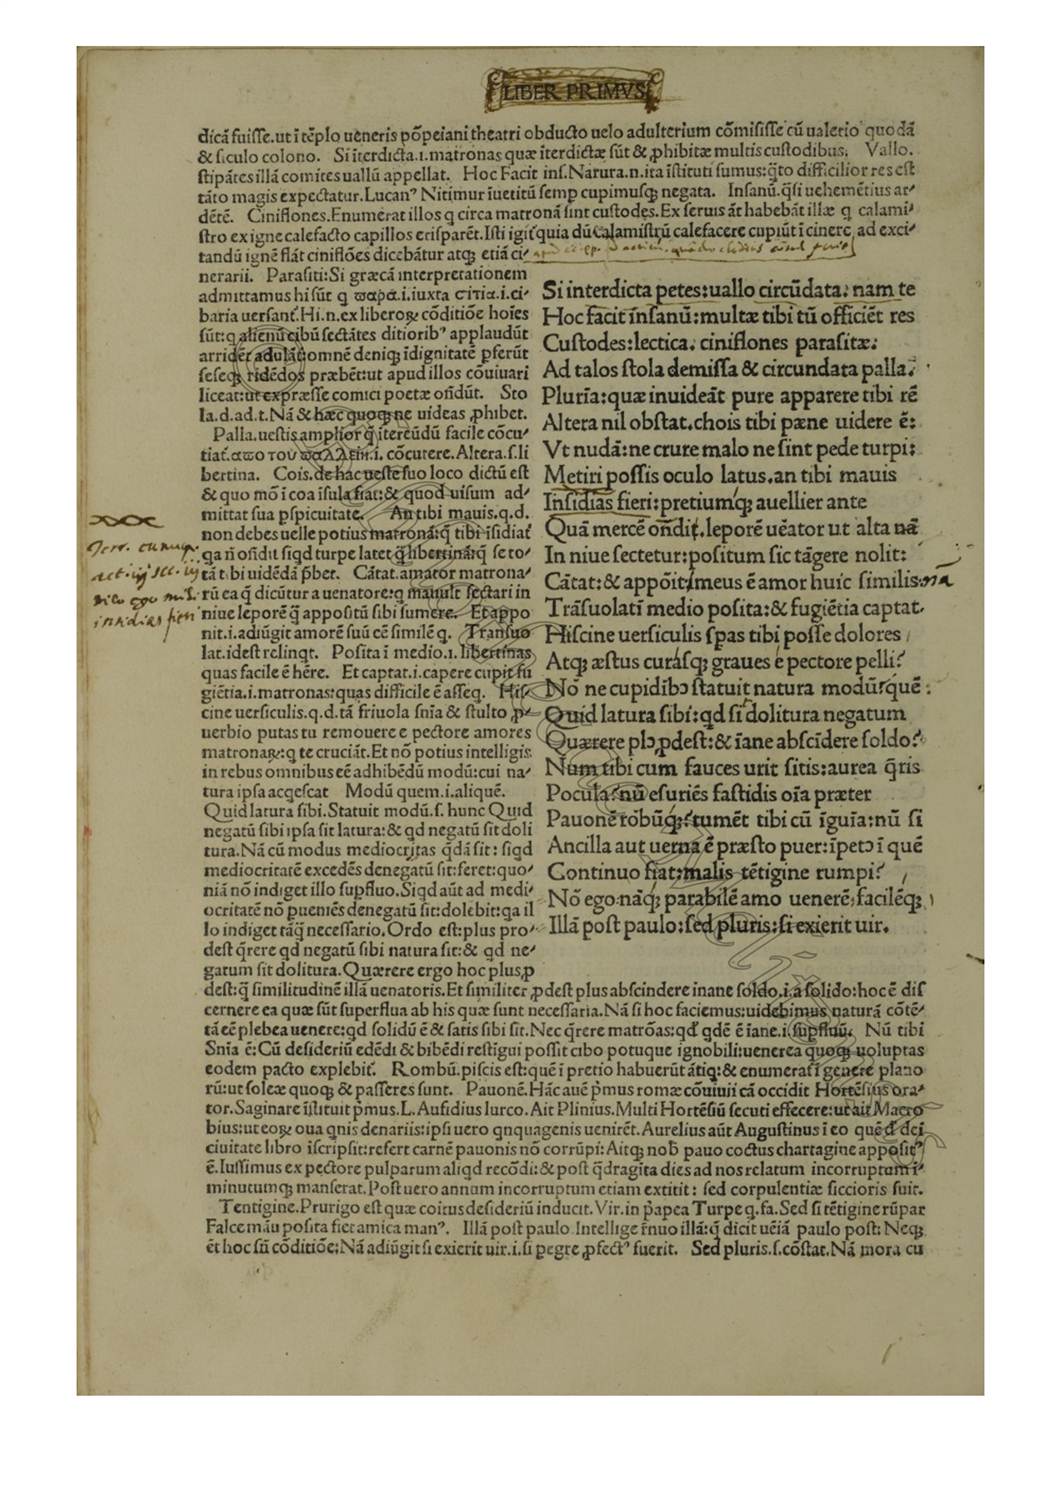 LIBER PRIMVS
dicā fuisse.ut ī tēplo ueneris pōpeiani theatri obducto uelo adulterium cōmisisse cū ualerio quodā
& siculo colono. Si īterdicta.i.matronas quæ īterdictæ sūt & ꝓhibitæ multis custodibus. Vallo.
stipātes illā comites uallū appellat. Hoc Facit ins. Narura.n.ita īstituti sumus:q̄to difficilior res est
tāto magis expectatur. Lucan⁹ Nitimur īuetitū semp cupimusq; negata. Insanū.q̄si uehemētius ar-
dētē. Ciniflones. Enumerat illos q circa matronā sint custodes. Ex seruis āt habebāt illæ q calami-
stro ex igne calefacto capillos crisparēt. Isti igit̄ quia dū Calamistrū calefacere cupiūt ī cinere ad exci-
tandū ignē flāt ciniflōes dicebātur atq; etiā ci-
nerarii. Parasiti: Si græcā interpretationem
admittamus hi sūt q παρα.i.iuxta σιτια.i.ci-
baria uersant̄. Hi.n.ex liberoꝝ cōditiōe hoies
sūt:q alienū cibū sectātes ditiorib⁹ applaudūt
arridēt adulāt̄ omnē deniq; īdignitatē pferūt
seseq; ridēdos præbēt:ut apud illos cōuiuari
liceat:ut expræsse comici poetæ oñdūt. Sto
la.d.ad.t. Nā & hæc quoq; ne uideas ꝓhibet.
Palla.uestis amplior q̄ itercūdū facile cōcu-
tiat̄.απο του παλλειν.i.cōcutere. Altera.s.li
bertina. Cois.de hac ueste suo loco dictū est
& quo mō ī coa īsula fiat:& quod uisum ad-
mittat sua pspicuitate. An tibi mauis.q.d.
non debes uelle potius matronā:q tibi īsidiat̄
qa ñ oñdit siqd turpe latet q̄ libertinā:q se to-
tā tibi uidēdā p̄bet. Cātat.amator matrona-
rū ea q dicūtur a uenatore:q mauult sectari in
niue leporē q̄ appositū sibi sumere. Et appo
nit.i.adiūgit amorē suū eē similē q. Transuo
lat.idest relinqt. Posita ī medio.i.libertinas
quas facile ē hēre. Et captat.i.capere cupit fu
giētia.i.matronas:quas difficile ē asseq. His-
cine uersiculis.q.d.tā friuola sñia & stulto ꝓ-
uerbio putas tu remouere e pectore amores
matronaꝝ:q te cruciāt. Et nō potius intelligis
in rebus omnibus eē adhibēdū modū:cui na-
tura ipsa acqescat Modū quem.i.aliquē.
Quid latura sibi. Statuit modū.s.hunc Quid
negatū sibi ipsa sit latura:& qd negatū sit doli
tura. Nā cū modus mediocritas q̄dā sit: siqd
mediocritatē excedēs denegatū sit:feret:quo-
niā nō indiget illo supfluo. Siqd aūt ad medi-
ocritatē nō pueniēs denegatū sit:dolebit:qa il
lo indiget tāq̄ necessario. Ordo est:plus pro-
dest q̄rere qd negatū sibi natura sit:& qd ne-
gatum sit dolitura. Quærere ergo hoc plus ꝓ
Si interdicta petes:uallo circūdata: nam te
Hoc facit īnsanū:multæ tibi tū officiēt res
Custodes:lectica. ciniflones parasitæ:
Ad talos stola demissa & circundata palla:
Plurīa:quæ inuideāt pure apparere tibi rē
Altera nil obstat.chois tibi pæne uidere ē:
Vt nudā:ne crure malo ne sint pede turpi:
Metiri possis oculo latus.an tibi mauis
Insidias fieri:pretiumq; auellier ante
Quā mercē oñdit.leporē uēator ut alta nā
In niue sectetur:positum sic tāgere nolit:
Cātat:& appōit:meus ē amor huic similis:nā
Trāsuolat ī medio posita:& fugiētia captat.
Hiscine uersiculis spas tibi posse dolores
Atq; æstus curasq; graues e pectore pelli?
Nō ne cupidibꝰ statuit natura modū:quē:
Quid latura sibi:qd si dolitura negatum
Quærere plꝰ ꝓdest:& īane abscīdere soldo?
Num tibi cum fauces urit sitis:aurea q̄ris
Pocula? nū esuriēs fastidis oīa præter
Pauonē rōbūq;? tumēt tibi cū īguīa:nū si
Ancilla aut uerna ē præsto puer:īpetꝰ ī quē
Continuo fiat:malis tētigine rumpi?
Nō ego:nāq; parabilē amo uenerē:facilēq;
Illā post paulo:sed pluris:si exierit uir.
dest:q̄ similitudinē illā uenatoris. Et similiter ꝓdest plus abscindere inane soldo.i.a solido:hoc ē dis
cernere ea quæ sūt superflua ab his quæ sunt necessaria. Nā si hoc faciemus:uidebimus naturā cōtē-
tā eē plebea uenere:qd solidū ē & satis sibi sit. Nec q̄rere matrōas:qd qdē ē īane.i.supfluū. Nū tibi
Snīa ē: Cū desideriū edēdi & bibēdi restīgui possit cibo potuque ignobili:uenerea quoq; uoluptas
eodem pacto explebit̄. Rombū.piscis est:quē ī pretio habuerūt ātiq:& enumerat̄ ī genere plano
rū:ut soleæ quoq; & passeres sunt. Pauonē. Hāc auē p̄mus romæ cōuiuii cā occidit Hortēsius ora-
tor. Saginare īstituit p̄mus. L. Aufidius lurco. Ait Plinius. Multi Hortēsiū secuti effecere:ut ait Macro
bius:ut eoꝝ oua qnis denariis:ipsi uero qnquagenis uenirēt. Aurelius aūt Augustinus ī eo quē d dei
ciuitate libro īscripsit:refert carnē pauonis nō corrūpi: Aitq; nob̄ pauo coctus chartagine apposit⁹
ē. Iussimus ex pectore pulparum aliqd recōdi:& post q̄dragita dies ad nos relatum incorruptum i-
minutumq; manserat. Post uero annum incorruptum etiam extitit: sed corpulentiæ siccioris fuit.
Tentigine. Prurigo est quæ coitus desideriū inducit. Vir. in p̄apea Turpe q.fa. Sed si tētigine rūpar
Falce māu posita fiet amica man⁹. Illā post paulo Intellige r̄nuo illā:q̄ dicit uēiā paulo post: Neq;
ēt hoc sū cōditiōe: Nā adiūgit si exierit uir.i.si pegre ꝓfect⁹ fuerit. Sed pluris.s.cōstat. Nā mora cu
insidias fieri